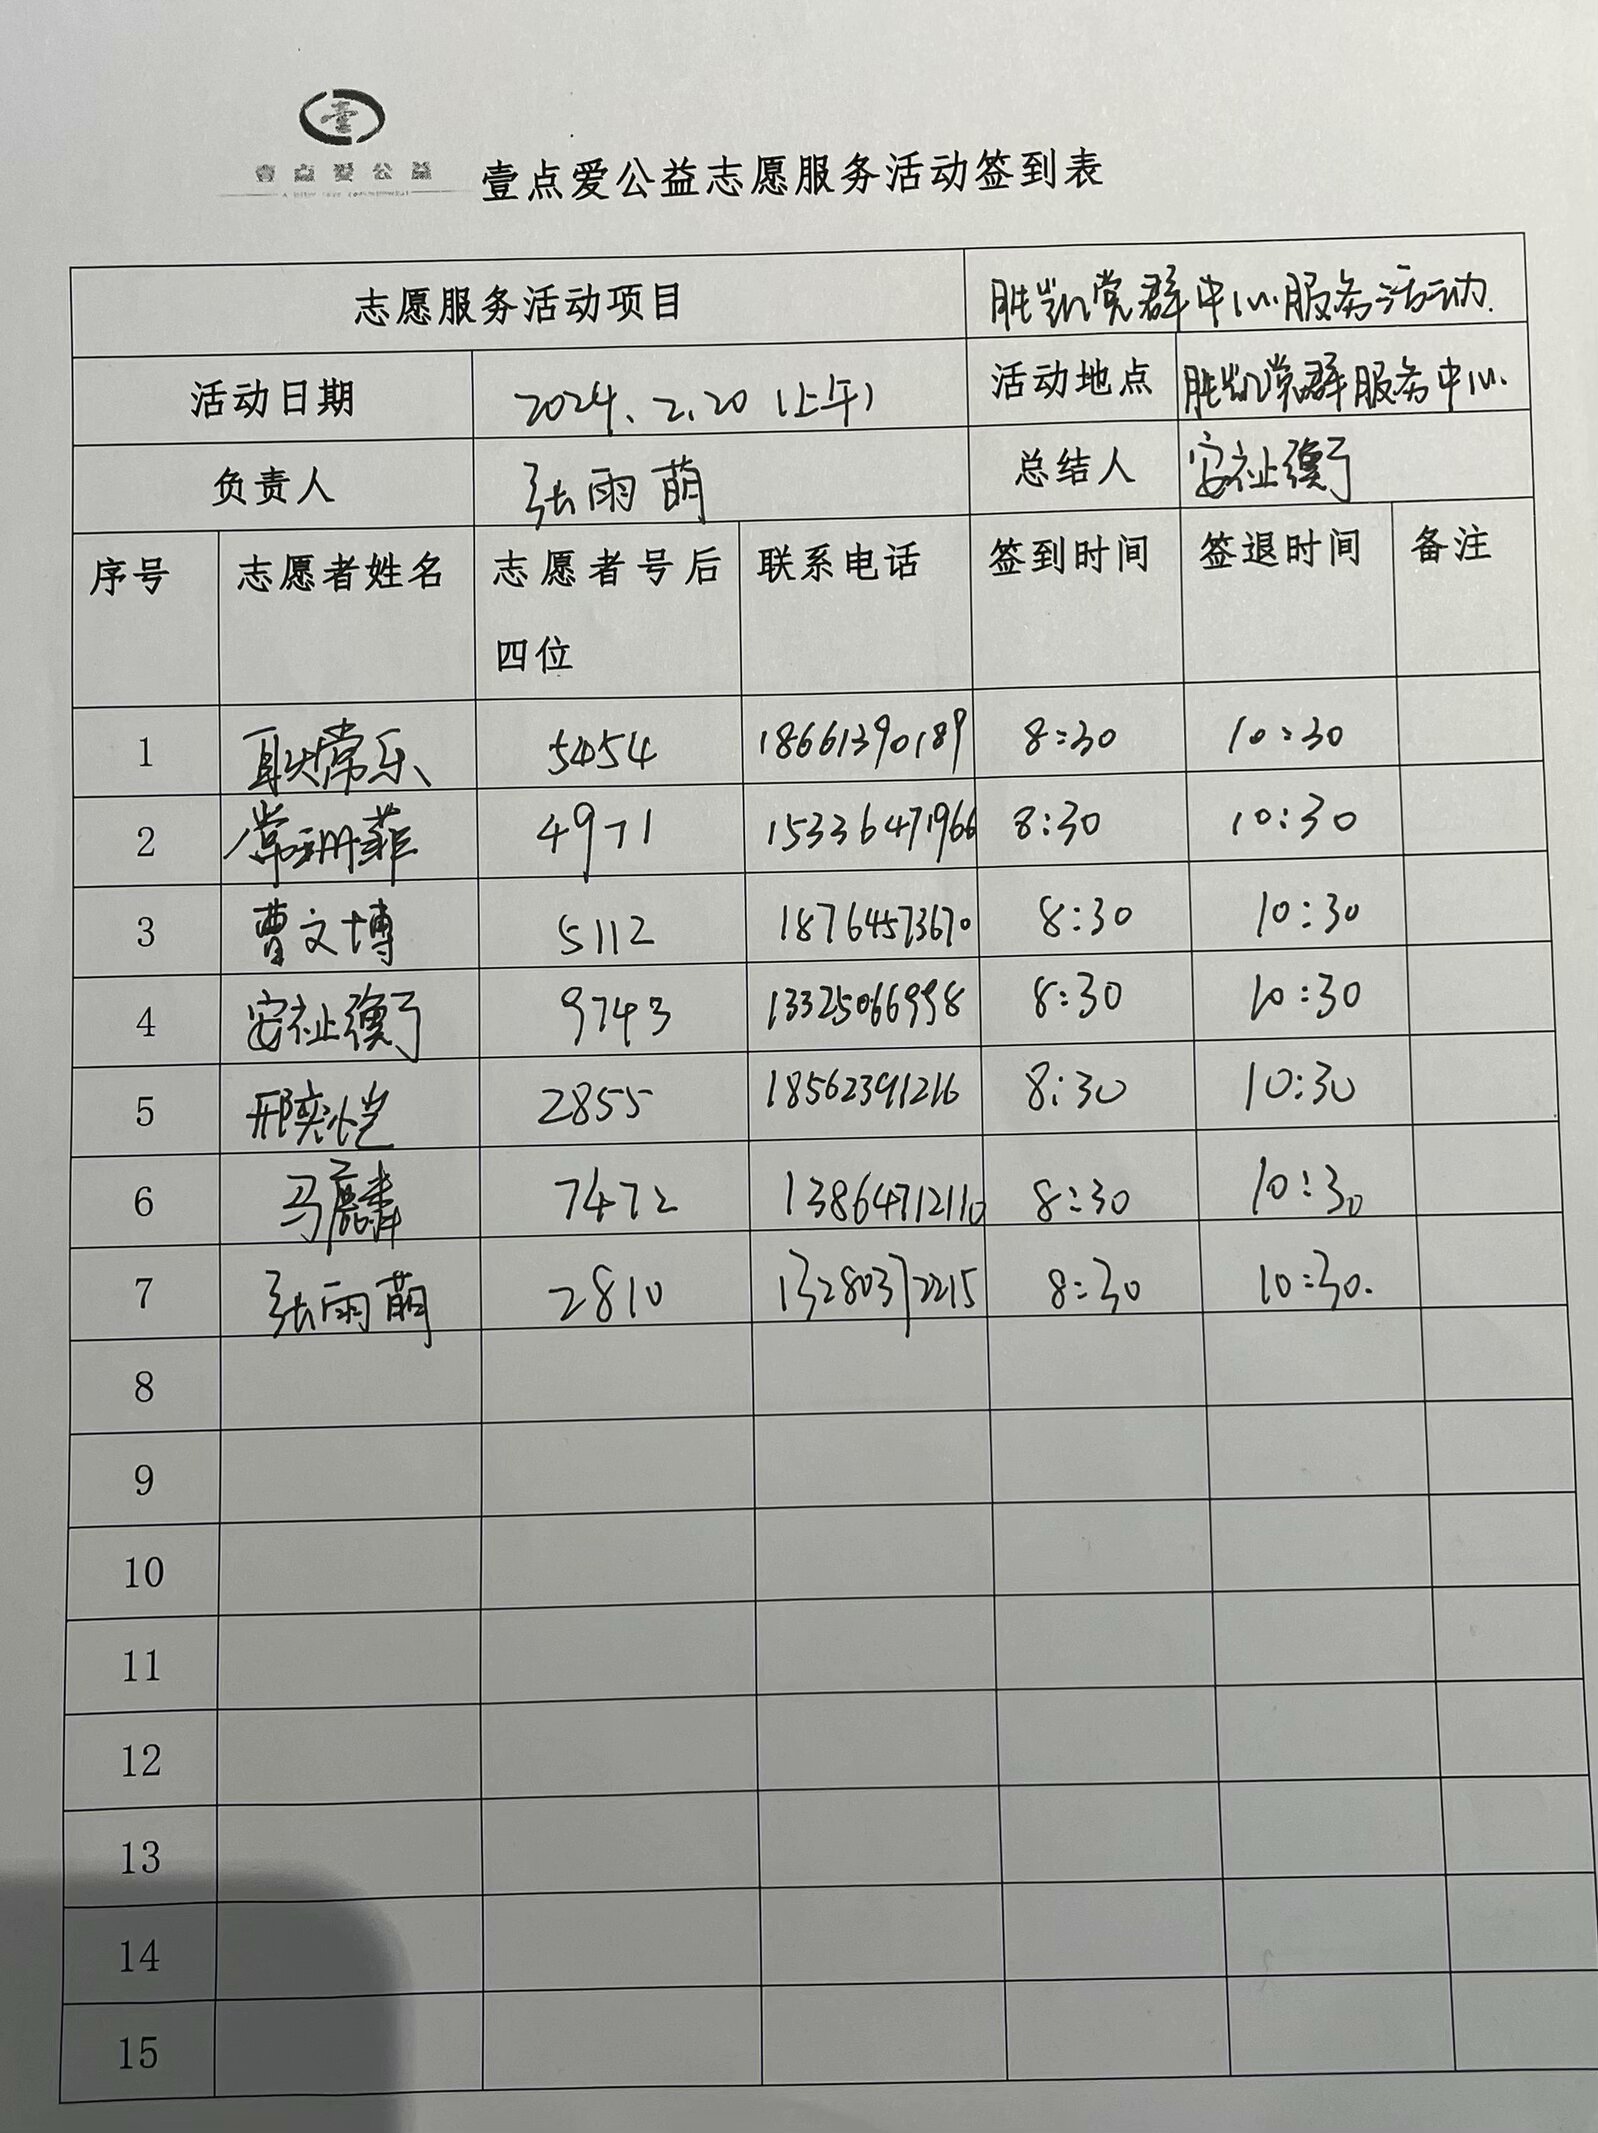 壹
壹点爱公益
壹点爱公益志愿服务活动签到表
志愿服务活动项目 胜凯党群中心服务活动.
活动日期 2024.2.20(上午) 活动地点 胜凯党群服务中心.
负责人 张雨萌 总结人 安祉衡
序号 志愿者姓名 志愿者号后 联系电话 签到时间 签退时间 备注
四位
1 耿常乐 5454 18661390189 8:30 10:30
2 常珊菲 4971 15336471966 8:30 10:30
3 曹文博 5112 18764573670 8:30 10:30
4 安祉衡 9743 13325066998 8:30 10:30
5 邢奕恺 2855 18562391216 8:30 10:30
6 马麟 7472 13864712110 8:30 10:30
7 张雨萌 2810 13280372215 8:30 10:30.
8
9
10
11
12
13
14
15